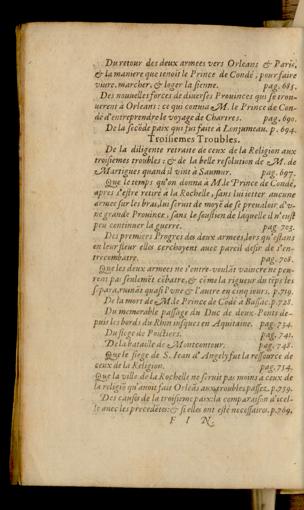 Du retour des deux armees vers Orleans & Paris,
& la maniere que tenoit le Prince de Condé, pour faire
viure, marcher, & loger la sienne. pag. 685.
Des nouvelles forces de diuerses Prouinces qui se trou-
uerent à Orleans: ce qui conuia M. le Prince de Con-
dé d'entreprendre le voyage de Chartres. pag. 690.
De la secõde paix qui fut faite à Lonjumeau. p. 694.
Troisiemes Troubles.
De la diligente retraite de ceux de la Religion aux
troisiemes troubles: & de la belle resolution de M. de
Martigues quand il vint à Saumur. pag. 697.
Que le temps qu'on donna à M. le Prince de Condé,
apres s'estre retiré à la Rochelle, sans lui ietter aucune
armee sur les bras, lui seruit de moyẽ de se preualoir d'v-
ne grande Prouince, sans le soustien de laquelle il n'eust
peu continuer la guerre. pag. 703.
Des premiers Progres des deux armees, lors qu'estans
en leur fleur elles cerchoyent auec pareil desir de s'en-
trecombatre. pag. 708.
Que les deux armees ne s'entre-voulãt vaincre ne peu-
rent pas seulemẽt cõbatre, & cõme la rigueur du tẽps les
separa, ruinãt quasi l'vne & l'autre en cinq iours. p. 719.
De la mort de M. le Prince de Codé à Bassac. p. 728.
Du memorable passage du Duc de deux-Ponts de-
puis les bords du Rhin iusques en Aquitaine. pag. 734.
Du siege de Poictiers. pag. 741.
De la bataille de Montcontour. pag. 748.
Que le siege de S. Iean d'Angely fut la ressource de
ceux de la Religion. pag. 754.
Que la ville de la Rochelle ne seruit pas moins à ceux de
la religiõ qu'auoit fait Orleãs aux troubles passez. p. 759.
Des causes de la troisieme paix: la comparaison d'icel-
le auec les precedẽtes: & si elles ont esté necessaires. p. 769.
F I N.